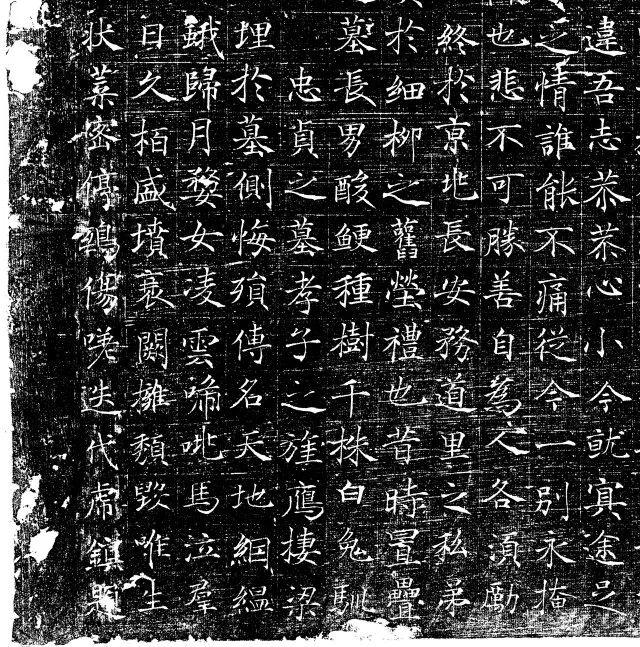 違吾志恭恭心小今就冥途足
之情誰能不痛從今一別永掩
也悲不可勝善自為之各須勵
終於京兆長安務道里之私第
於細柳之舊塋禮也昔時置疊
墓長男酸鯁種樹千株白兔馴
忠貞之墓孝子之雄鴈棲梁
埋於墓側悔殞傳名天地絪縕
蛾歸月婺女凌雲啼吡馬泣羣
日久栢盛墳衰闕摧頹毀唯生
狀葉密停鶏傷嘆迭代席鎮題